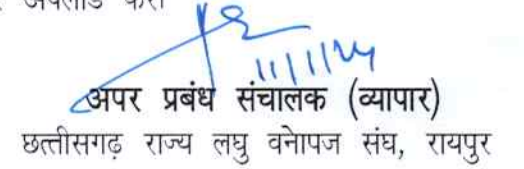 अपलोड करें
11/1/24
अपर प्रबंध संचालक (व्यापार)
छत्तीसगढ़ राज्य लघु वनोपज संघ, रायपुर